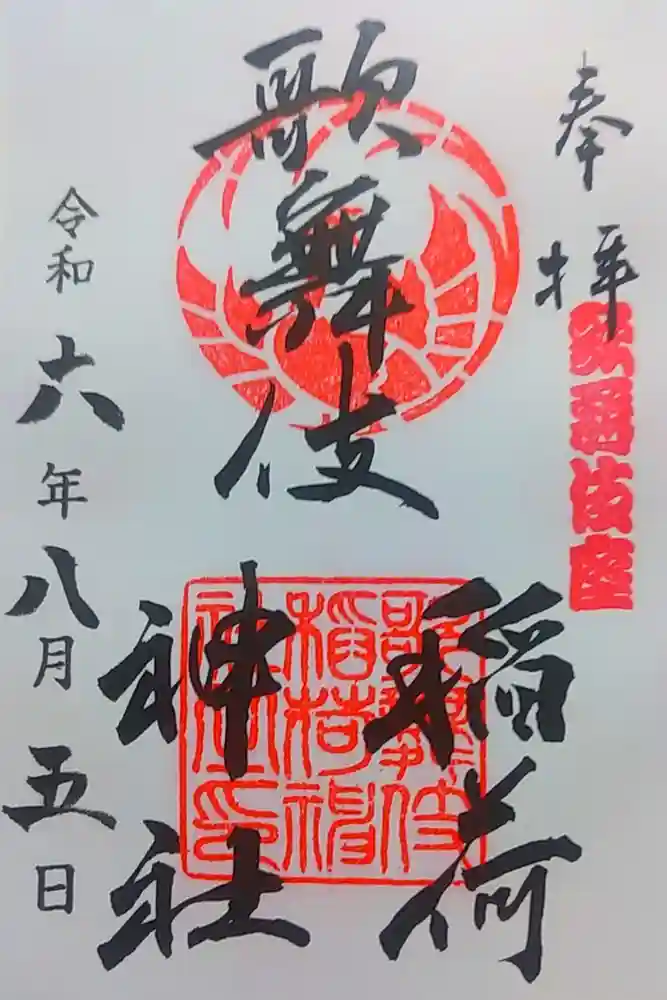 奉拝
歌舞伎座
歌舞伎
稲荷
神社
歌舞伎
稲荷神
社之印
令和六年八月五日